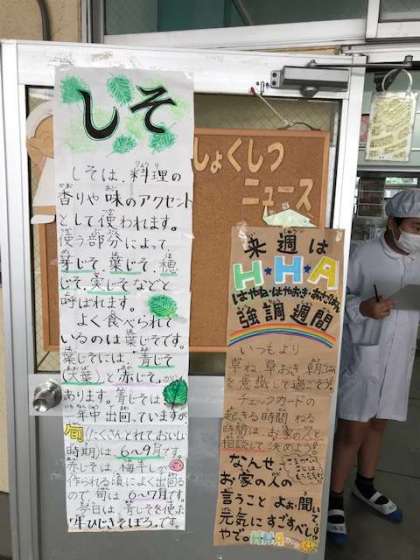 しそ
しそは、料理の
香りや味のアクセント
として使われます。
使う部分によって、
芽じそ、葉じそ、穂
じそ、実じそなどと
呼ばれます。
よく食べられて
いるのは葉じそです。
葉じそには、"青じそ
(大葉)"と"赤じそ"が
あります。青じそは
一年中出回っていますが
旬(たくさんとれておいしい
時期)は、6〜9月です。
赤じそは、梅干しが
作られる頃によく出回る
ので旬は6〜7月です。
今日は、青じそを使った
"生ひじきそぼろ"です。
しょくしつ
ニュース
来週は
H・H・A
はやね・はやおき・あさごはん
強調週間
いつもより
早ね、早おき、朝ごはん
を意識して過ごそう。
チェックカードの
起きる時間、ねる
時間は、お家の人と
相談して決めよう!
なんせ、
お家の人の
言うことよぉ聞いて
元気にすごすべし
やで。
HHA